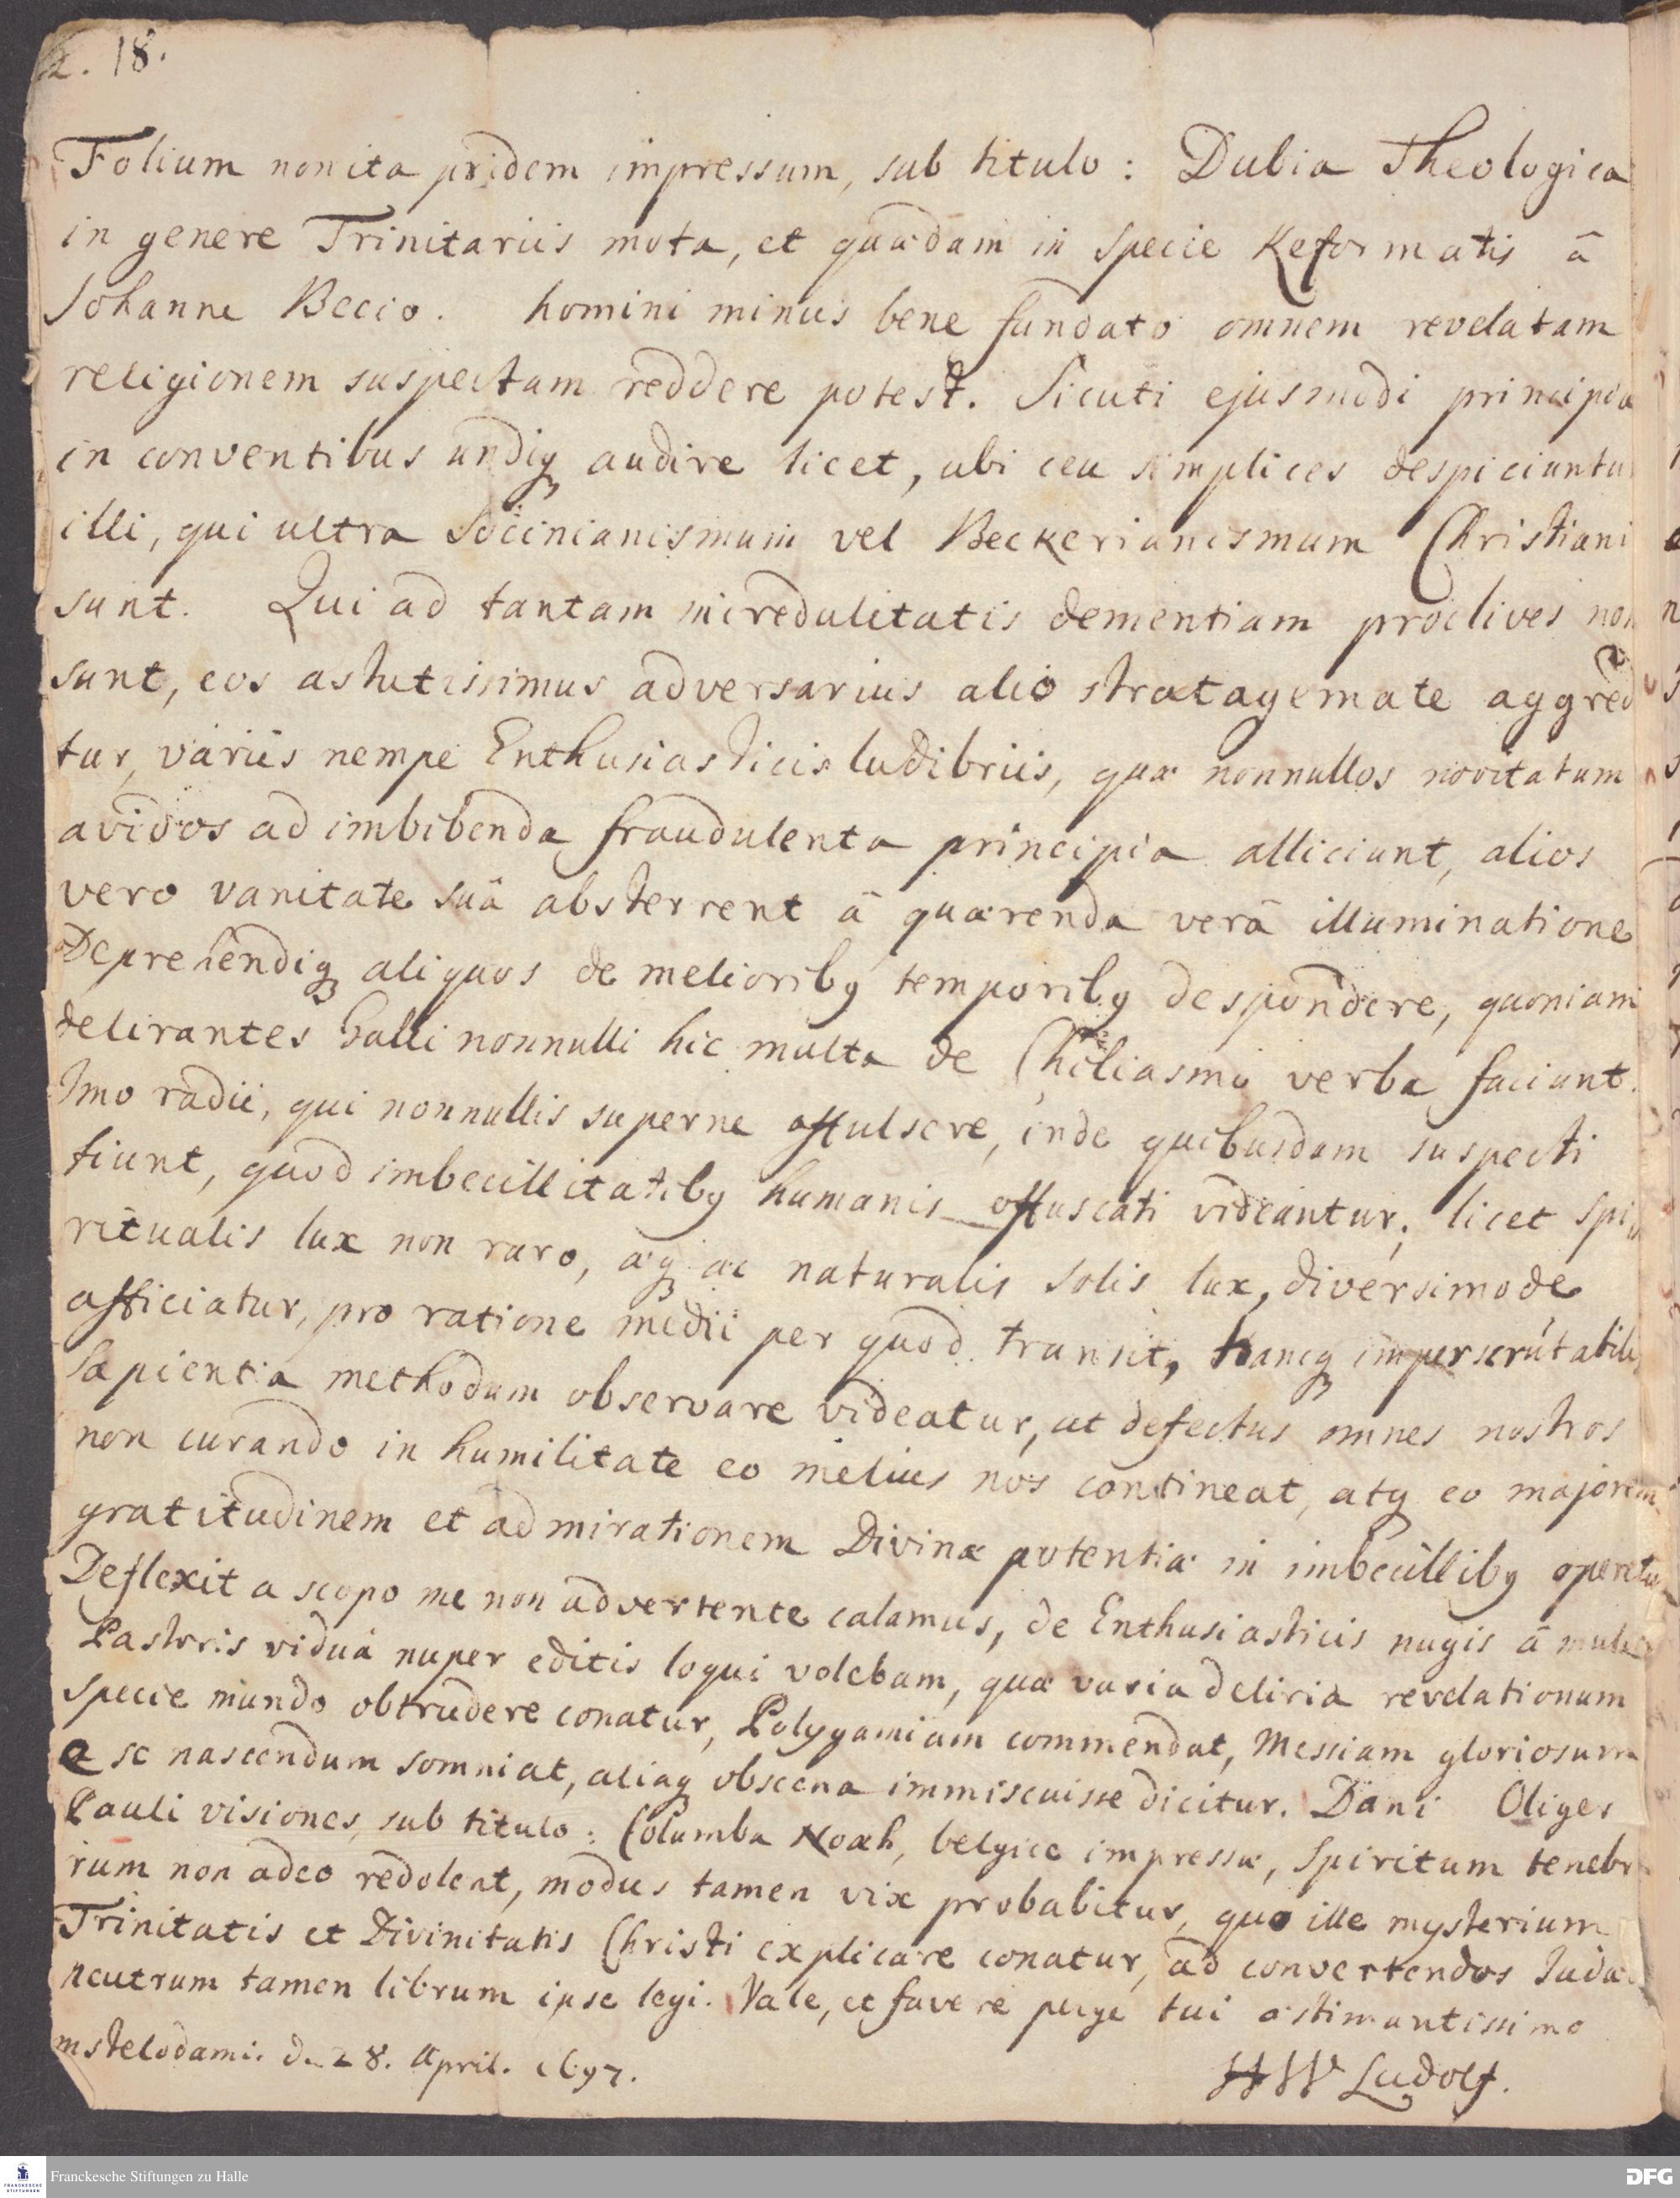 18.
Folium non ita pridem impressum, sub titulo: Dubia Theologica
in genere Trinitariis mota, et quædam in specie Reformatis â
Johanne Becio. homini minus bene fundato omnem revelatam
religionem suspectam reddere potest. Sicuti ejusmodi principia
in conventibus undiq audire licet, ubi ceu simplices despiciuntu
illi, qui ultra Socinianismum vel Beckerianismum Christiani
sunt. Qui ad tantam incredulitatis dementiam proclives non
sunt, eos astutissimus adversarius alio stratagemate aggredi
tur, variis nempe Enthusiasticis ludibriis, quæ nonnullos novitatum
avidos ad imbibenda fraudulenta principia alliciunt, alios
vero vanitate suâ absterrent â quærenda verâ illuminatione
Deprehendiq aliquos de melioribq temporibq despondere, quoniam
delirantes Galli nonnulli hic multa de Chiliasmo verba faciunt.
Imo radii, qui nonnullis superne affulsere, inde quibusdam suspecti
fiunt, quod imbecillitatibq humanis offuscati videantur; licet spi
ritualis lux non raro, æq ac naturalis solis lux, diversimode
afficiatur, pro ratione medii per quod transit, hancq imperscrutabilis
Sapientia methodum observare videatur, ut defectus omnes nostros
non curando in humilitate eo melius nos contineat, atq eo majorem
gratitudinem et admirationem Divinæ potentiæ in imbecillibq operetur
Deflexit a scopo me non advertente calamus, de Enthusiasticis nugis â
Pastoris viduâ nuper editis loqui volebam, quæ varia deliria revelationum
specie mundo obtrudere conatur, Polygamiam commendat, Messiam gloriosum
e se nascendum somniat, aliaq obscena immiscuisse dicitur. Dani Oliger
Pauli visiones, sub titulo: Columba Noah, belgice impressæ, Spiritum tenebr
rum non adeo redolent, modus tamen vix probabitur, quo ille mysterium
Trinitatis et Divinitatis Christi explicare conatur, ad convertendos Judæ
neutrum tamen librum ipse legi. Vale, et favere perge tui æstimantissimo
mstelodami. d. 28. April. 1697.
HW Ludolf.
Franckesche Stiftungen zu Halle
FRANCKESCHE STIFTUNGEN
DFG